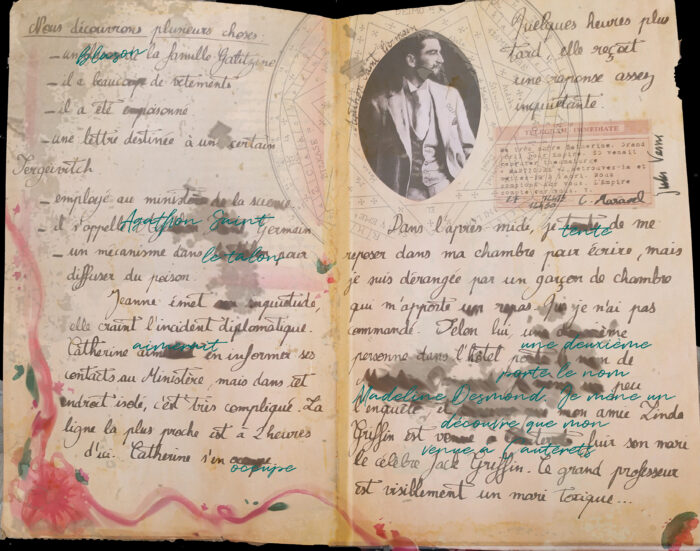 Nous découvrons plusieurs choses:
- un Blason de la famille Galitzine
- il a beaucoup de vêtements
- il a été empoisonné
- une lettre destinée à un certain
Tergeivitch
- employé au ministère de la guerre
- il s'appelle Agathon Saint Germain
- un mécanisme dans le talon pour
diffuser du poison.
Jeanne émet son inquiétude,
elle craint l'incident diplomatique.
Catherine aimerait en informer ses
contacts au Ministère, mais dans cet
endroit isolé, c'est très compliqué. La
ligne la plus proche est à 2 heures
d'ici. Catherine s'en occupe
Agathon Saint Germain
Quelques heures plus
tard elle reçoit
une réponse assez
inquiétante.
TELEGRAM IMMEDIATE
C. Maravel
Jules Verne
Dans l'après midi, je tente de me
reposer dans ma chambre pour écrire, mais
je suis dérangée par un garçon de chambre
qui m'apporte un repas. Que je n'ai pas
commandé. Selon lui, une deuxième
personne dans l'hôtel porte le nom de
Madeline Desmond. Je mène un peu
l'enquête et découvre que mon amie Linda
Griffin est venue à Cauterets fuir son mari
le célèbre Jack Griffin. Ce grand professeur
est visiblement un mari toxique...